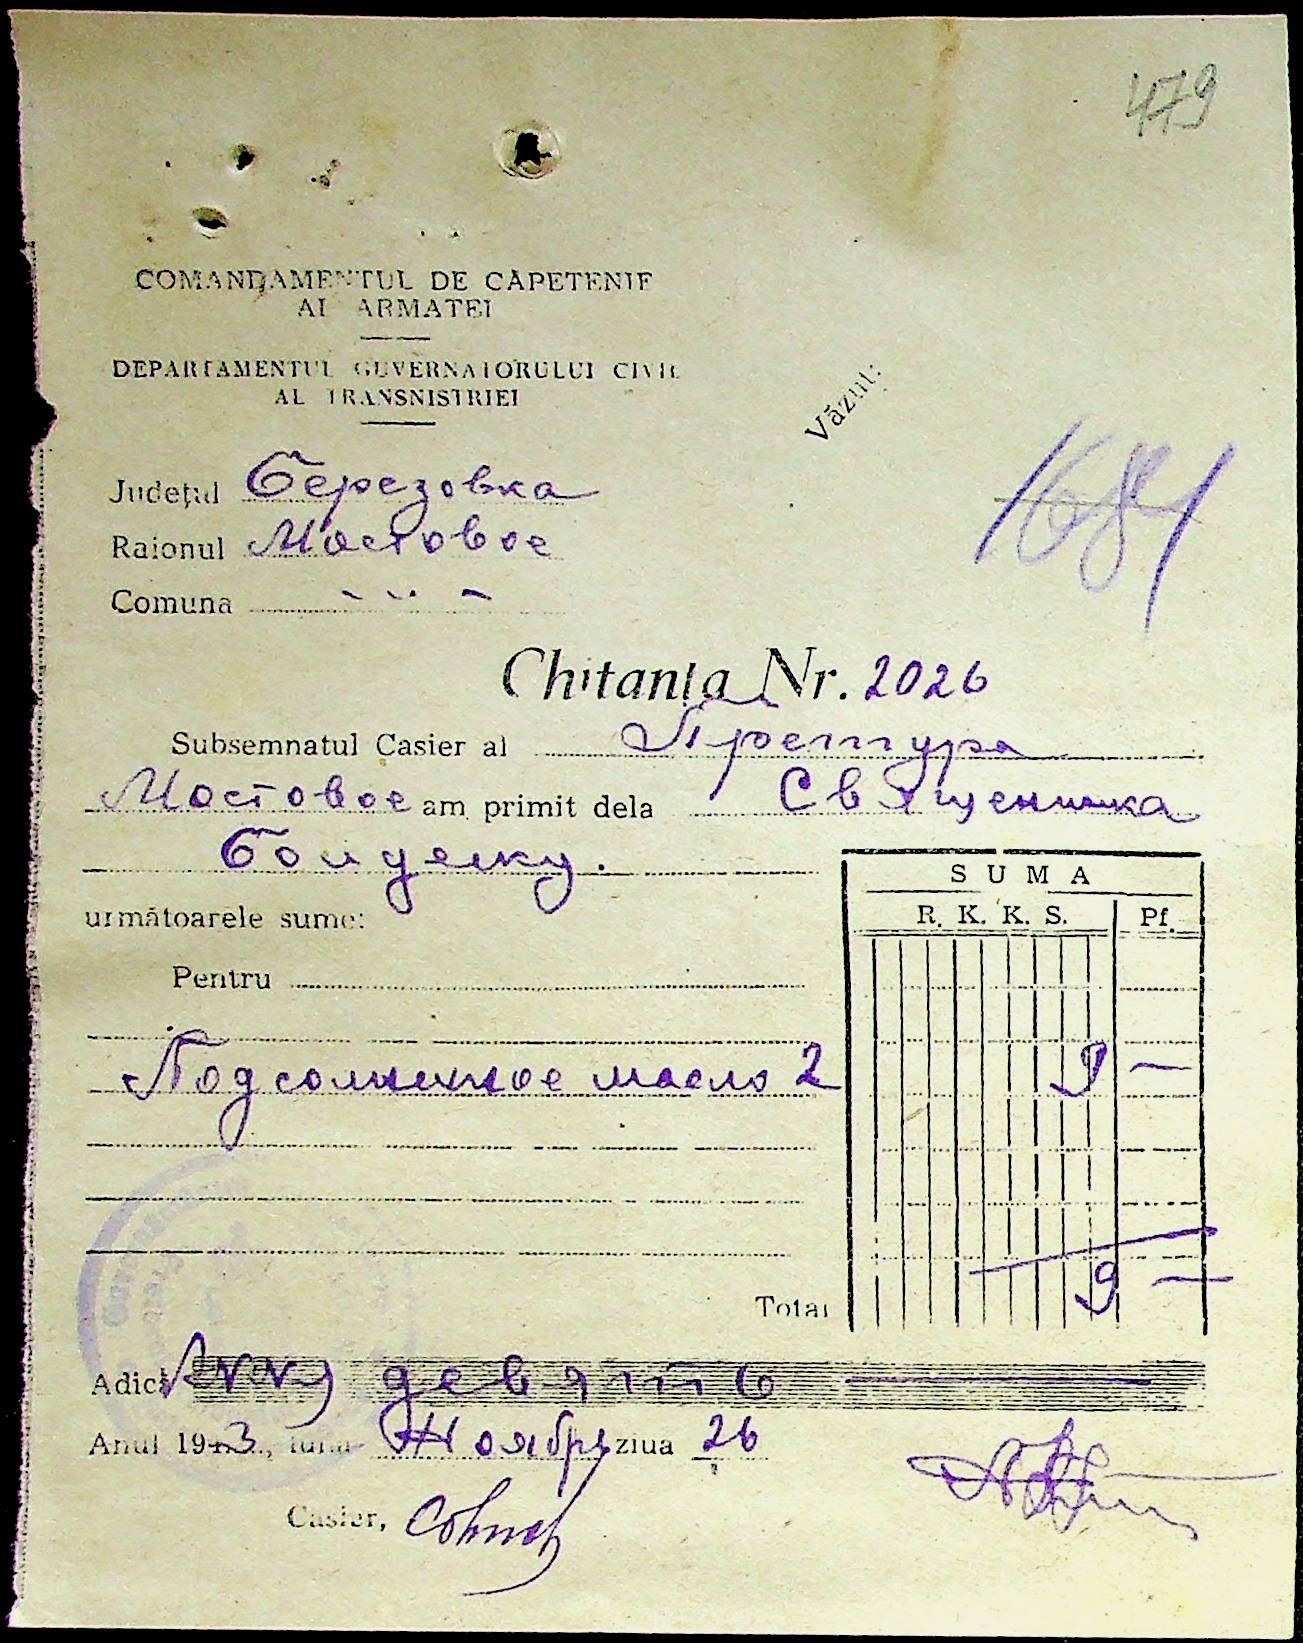 479
COMANDAMENTUL DE CĂPETENIE
AL ARMATEI
DEPARTAMENTUL GUVERNATORULUI CIVIL
AL TRANSNISTRIEI
Văzut:
Județul Березовка
Raionul Мостовое
Comuna - .. -
Chitanța Nr. 2026
Subsemnatul Casier al Претура
Мостовое am primit dela Священика
următoarele sume:
SUMA
R. K. K. S. Pf.
Pentru
Подсолнечное масло 2 9 —
Total 9 —
Adică девять
Anul 1943, luna Ноябрь ziua 26
Casier,